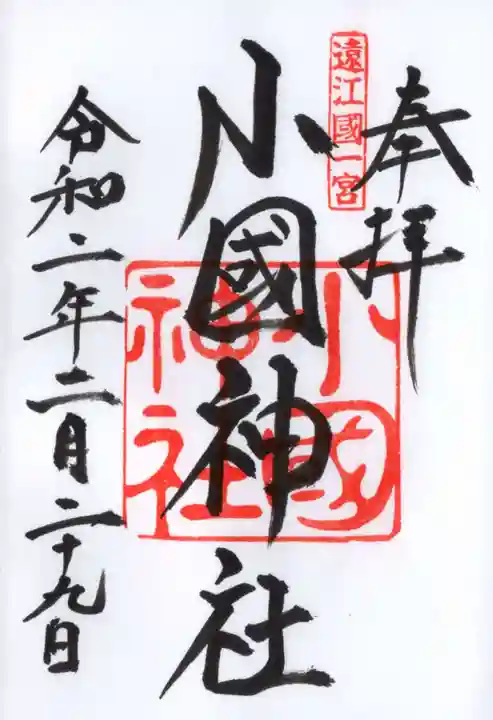 奉拝
遠江國一宮
小國神社
小國神社
令和二年二月二十九日